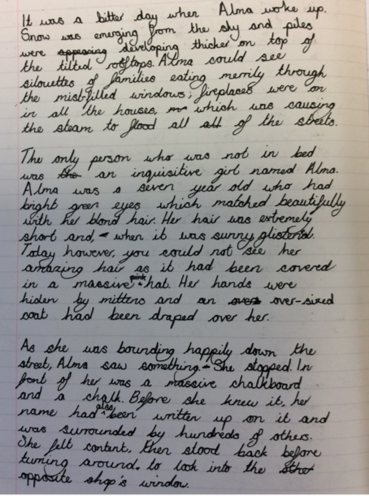 It was a bitter day when Alma woke up.
Snow was emerging from the sky and piles
were developing thicker on top of
the tilted rooftops. Alma could see
silouettes of families eating merrily through
the mist-filled windows; fireplaces were on
in all the houses, which was causing
the steam to flood all of the streets.
The only person who was not in bed
was an inquisitive girl named Alma.
Alma was a seven year old who had
bright green eyes which matched beautifully
with her blond hair. Her hair was extremely
short and, when it was sunny, glistend.
Today however, you could not see her
amazing hair as it had been covered
in a massive pink hat. Her hands were
hiden by mittens and an over-sized
coat had been draped over her.
As she was bounding happily down the
street, Alma saw something. She stopped. In
front of her was a massive chalkboard
and a chalk. Before she knew it, her
name had also been written up on it and
was surrounded by hundreds of others.
She felt content, then stood back before
turning around, to look into the
opposite shop's window.